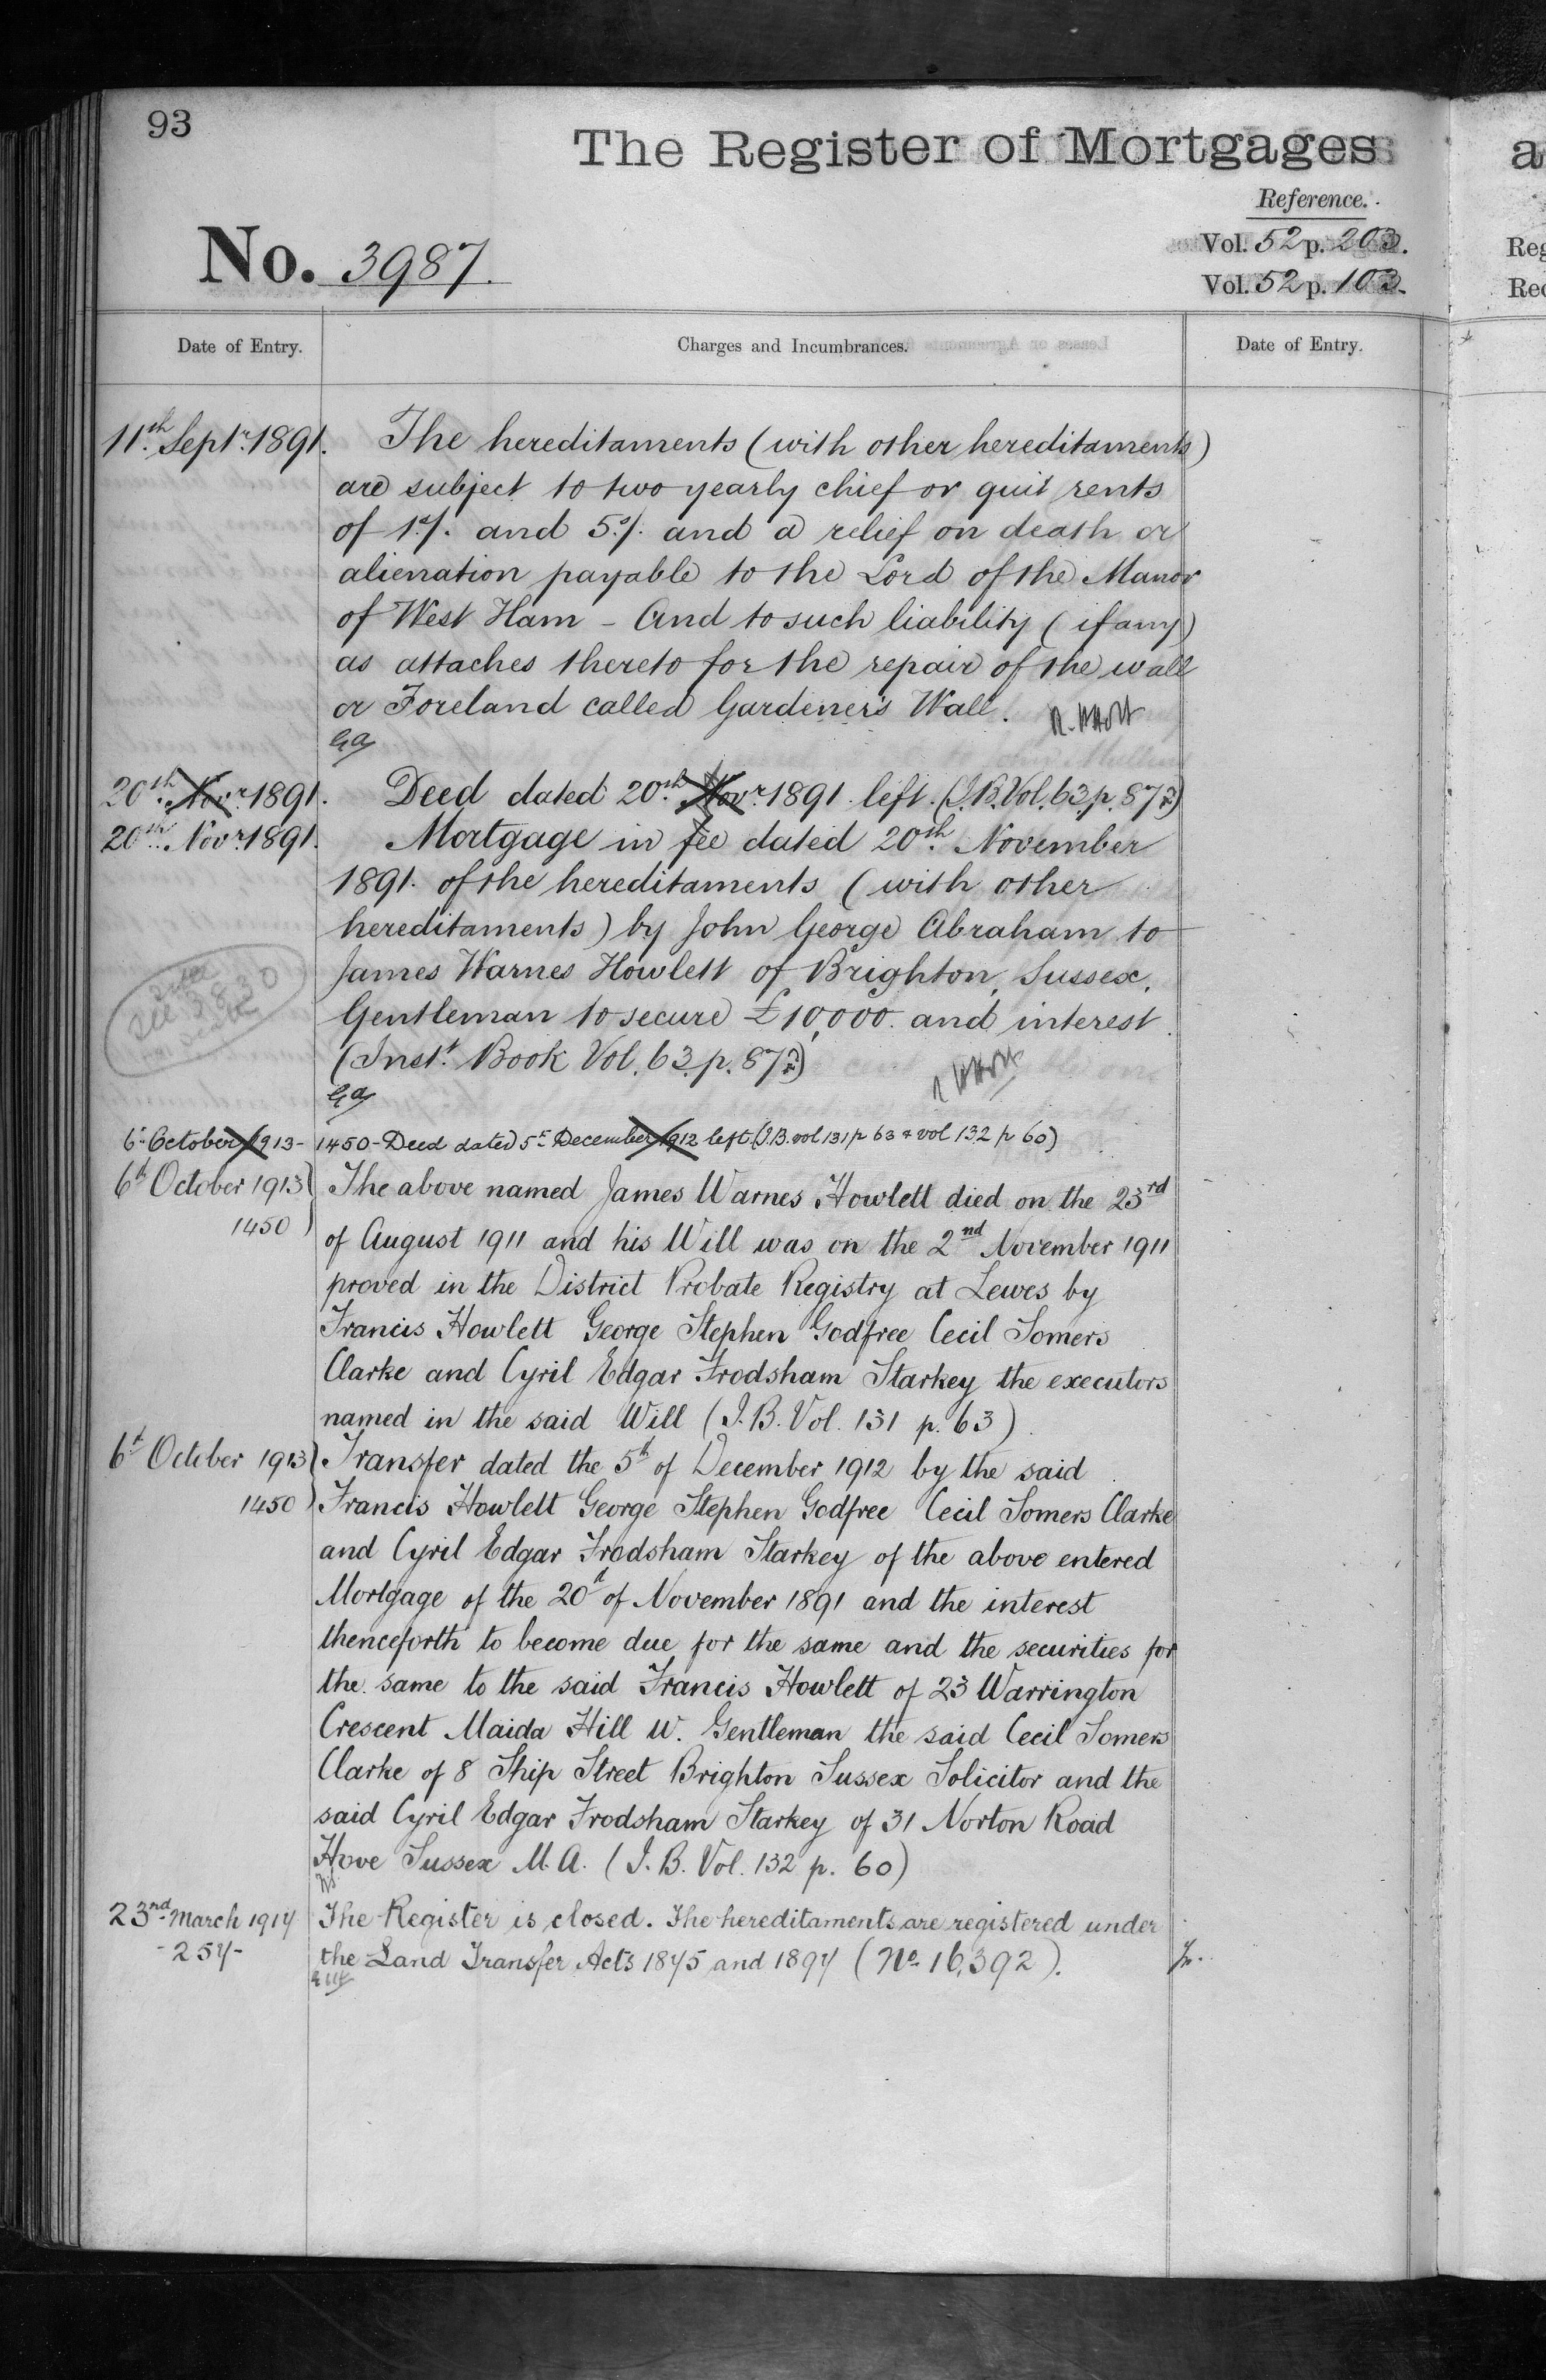 93
The Register of Mortgages
Reference.
No. 3987.
Vol. 52 p. 203.
Vol. 52 p. 103.
Date of Entry.
Charges and Incumbrances.
Date of Entry.
11th Septr. 1891.
The hereditaments (with other hereditaments)
are subject to two yearly chief or quit rents
of 1s/. and 5s/. and a relief on death or
alienation payable to the Lord of the Manor
of West Ham – And to such liability (if any)
as attaches thereto for the repair of the wall
or Foreland called Gardener's Wall.
20th Novr. 1891.
Deed dated 20th Novr. 1891 left. (I.B. Vol. 63. p. 87
20th Novr. 1891.
Mortgage in fee dated 20th November
1891. of the hereditaments (with other
hereditaments) by John George Abraham to
James Warnes Howlett of Brighton, Sussex,
Gentleman to secure £10,000. and interest
(Inst. Book Vol. 63. p. 87
6th October 1913 -
1450 - Deed dated 5th December 1912 left (I.B. vol 131 p 63 & vol 132 p 60)
6th October 1913
1450
The above named James Warnes Howlett died on the 23rd
of August 1911 and his Will was on the 2nd November 1911
proved in the District Probate Registry at Lewes by
Francis Howlett George Stephen Godfree Cecil Somers
Clarke and Cyril Edgar Frodsham Starkey the executors
named in the said Will (I.B. Vol. 131 p. 63)
6th October 1913
1450
Transfer dated the 5th of December 1912 by the said
Francis Howlett George Stephen Godfree Cecil Somers Clarke
and Cyril Edgar Frodsham Starkey of the above entered
Mortgage of the 20th of November 1891 and the interest
thenceforth to become due for the same and the securities for
the same to the said Francis Howlett of 23 Warrington
Crescent Maida Hill W. Gentleman the said Cecil Somers
Clarke of 8 Ship Street Brighton Sussex Solicitor and the
said Cyril Edgar Frodsham Starkey of 31 Norton Road
Hove Sussex M.A. (I.B. Vol. 132 p. 60)
23rd March 1914
- 254 -
The Register is closed. The hereditaments are registered under
the Land Transfer Acts 1875 and 1897 (No. 16,392).
a
Reg
Rec